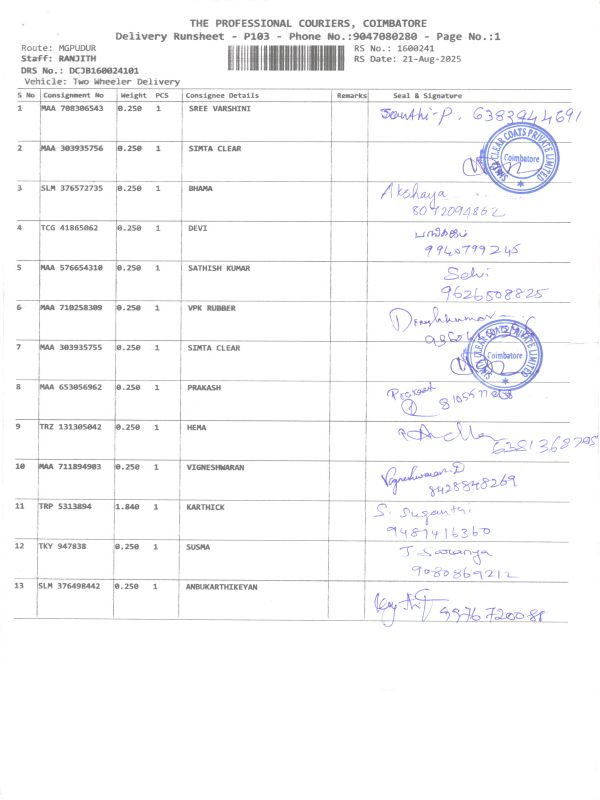 THE PROFESSIONAL COURIERS, COIMBATORE
Delivery Runsheet - P103 - Phone No.:9047080280 - Page No.:1
Route: MGPUDUR RS No.: 1600241
Staff: RANJITH RS Date: 21-Aug-2025
DRS No.: DCJB160024101
Vehicle: Two Wheeler Delivery
S No Consignment No Weight PCS Consignee Details Remarks Seal & Signature
1 MAA 708306543 0.250 1 SREE VARSHINI Santhi-P. 6383944691
2 MAA 303935756 0.250 1 SIMTA CLEAR CLEAR COATS PRIVATE LIMITED Coimbatore
3 SLM 376572735 0.250 1 BHAMA Akshaya
8072094862
4 TCG 41865062 0.250 1 DEVI
9940799245
5 MAA 576654310 0.250 1 SATHISH KUMAR Selvi
9626508825
6 MAA 710258309 0.250 1 VPK RUBBER
7 MAA 303935755 0.250 1 SIMTA CLEAR CLEAR COATS PRIVATE LIMITED Coimbatore
8 MAA 653056962 0.250 1 PRAKASH Prakash
9 TRZ 131305042 0.250 1 HEMA
6381368795
10 MAA 711894903 0.250 1 VIGNESHWARAN Vigneshwaran.D
8428848269
11 TRP 5313894 1.840 1 KARTHICK S. Suganthi
9487416360
12 TKY 947838 0.250 1 SUSMA J. Saranya
9080869212
13 SLM 376498442 0.250 1 ANBUKARTHIKEYAN 9976720088